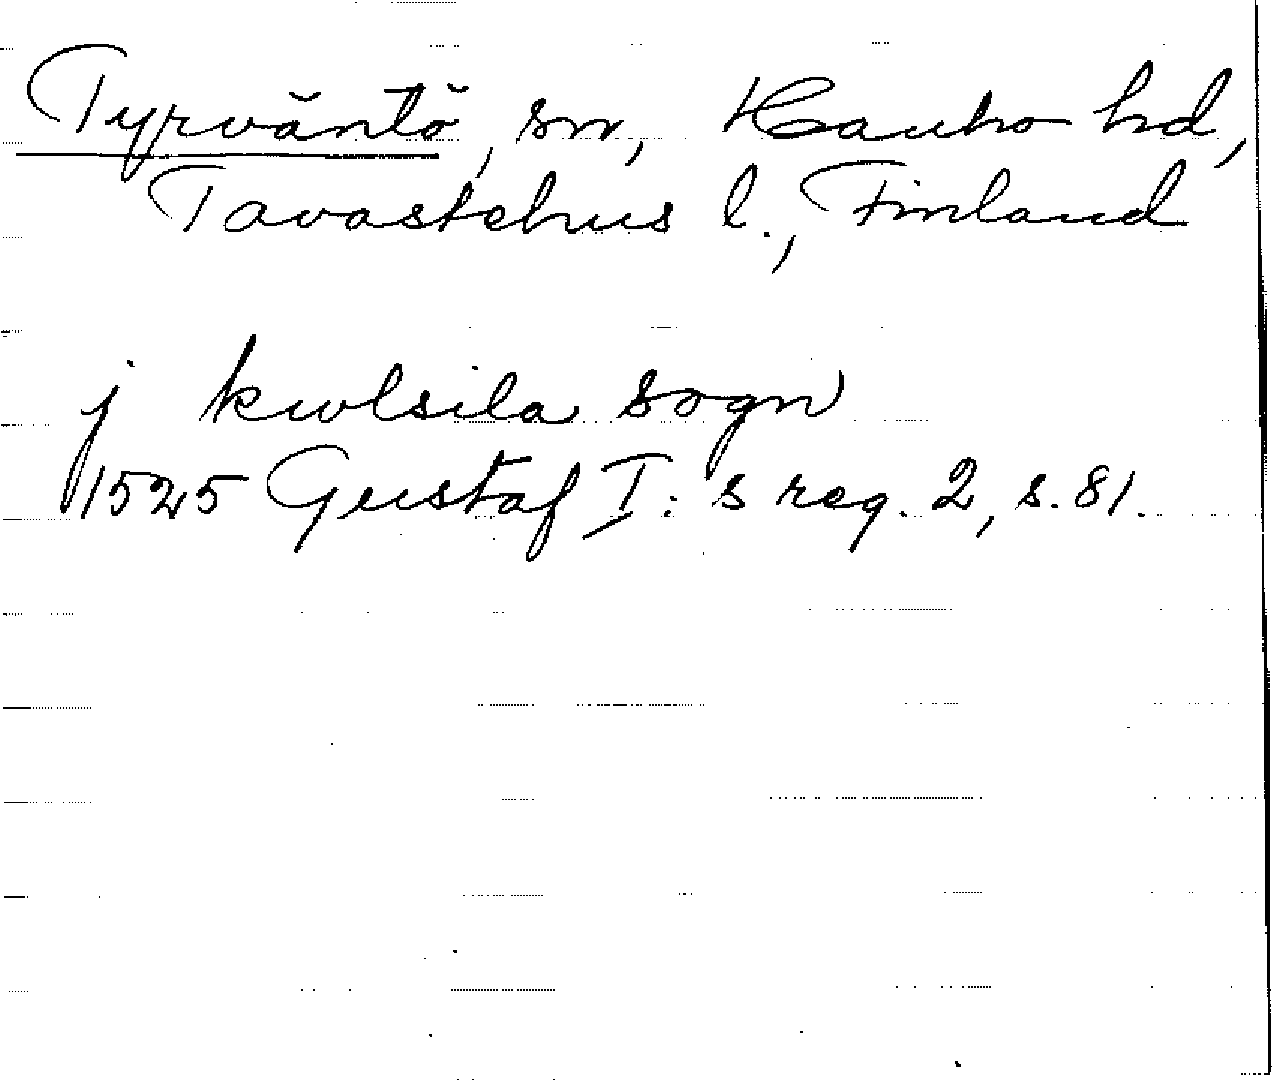 Tyrväntö, sn, Hauho hd,
Tavastehus l., Finland
j kwlsila sogn
1525 Gustaf I:s reg. 2, s. 81.